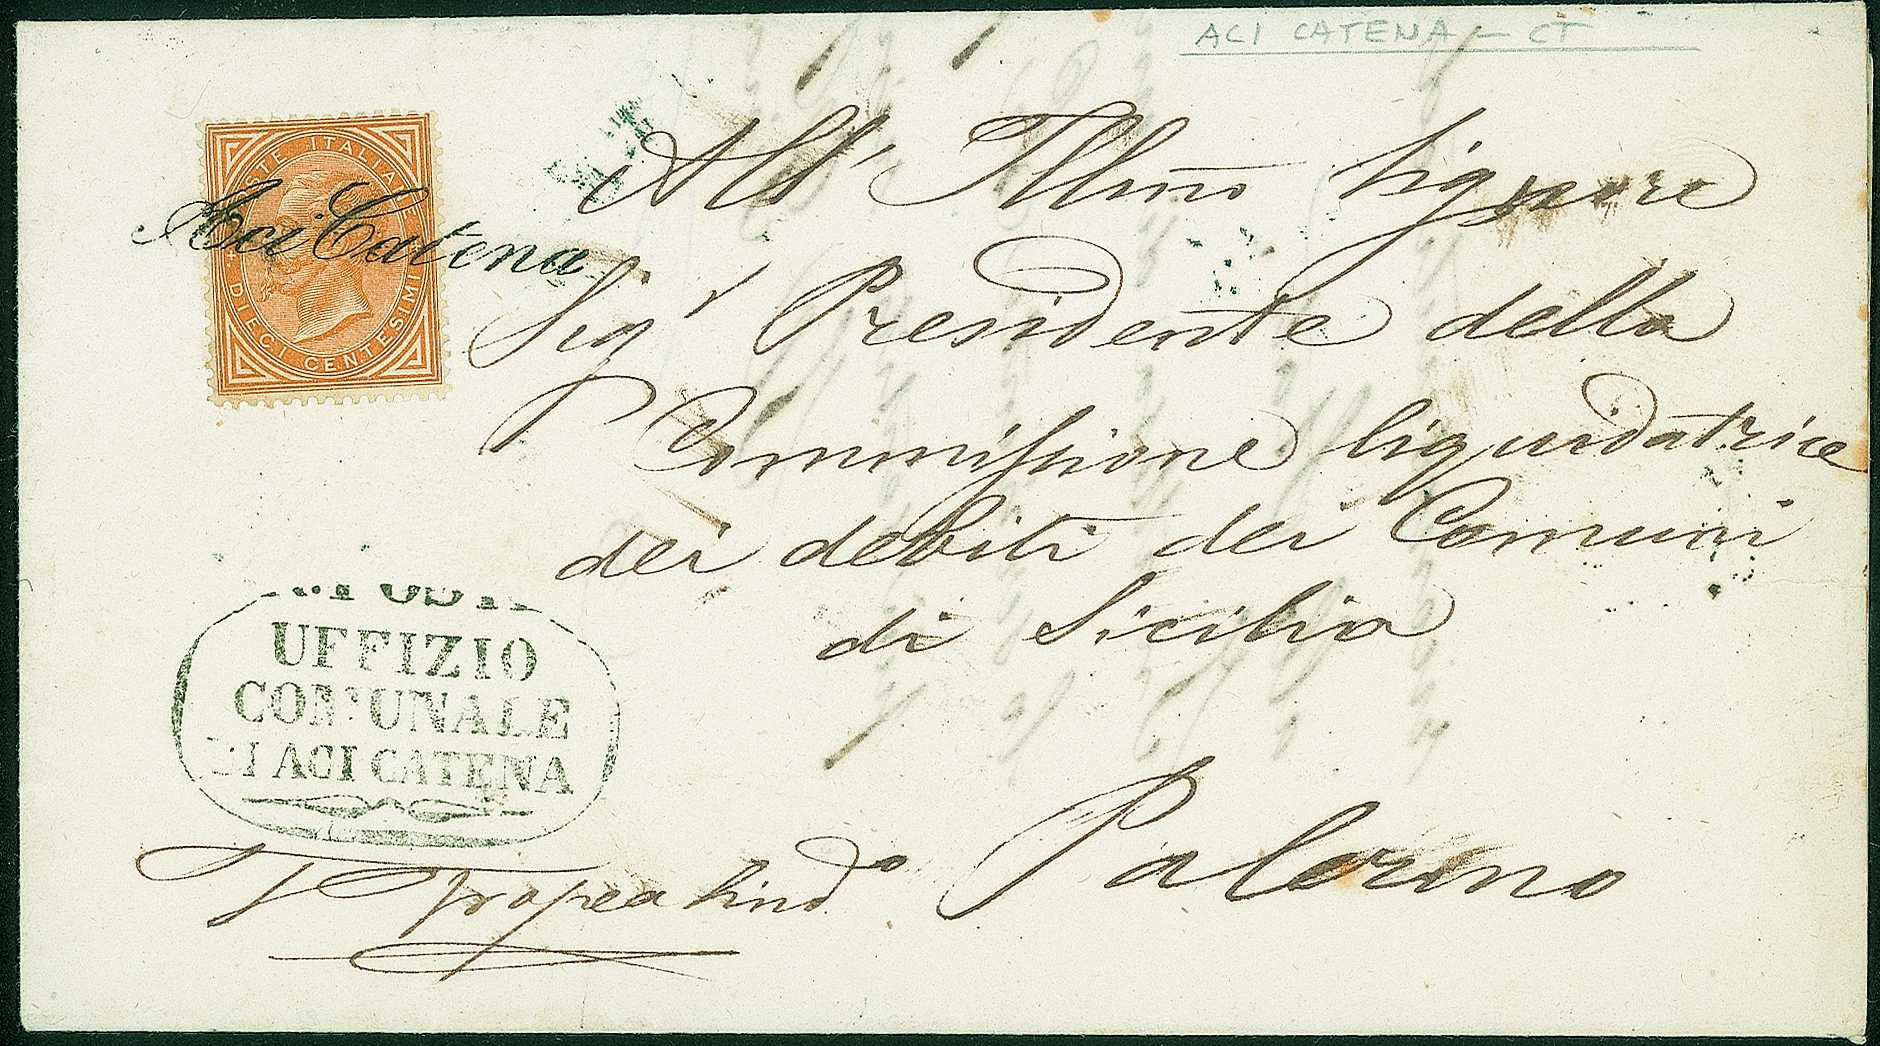 ACI CATENA - CT
POSTE ITALIANE
DIECI CENTESIMI
Aci Catena
All' Illmo Signore
Sigr Presidente della
Commissione liquidatrice
dei debiti dei Comuni
di Sicilia
Palermo
R. POSTA
UFFIZIO
COMUNALE
DI ACI CATENA
Tropea Sindo